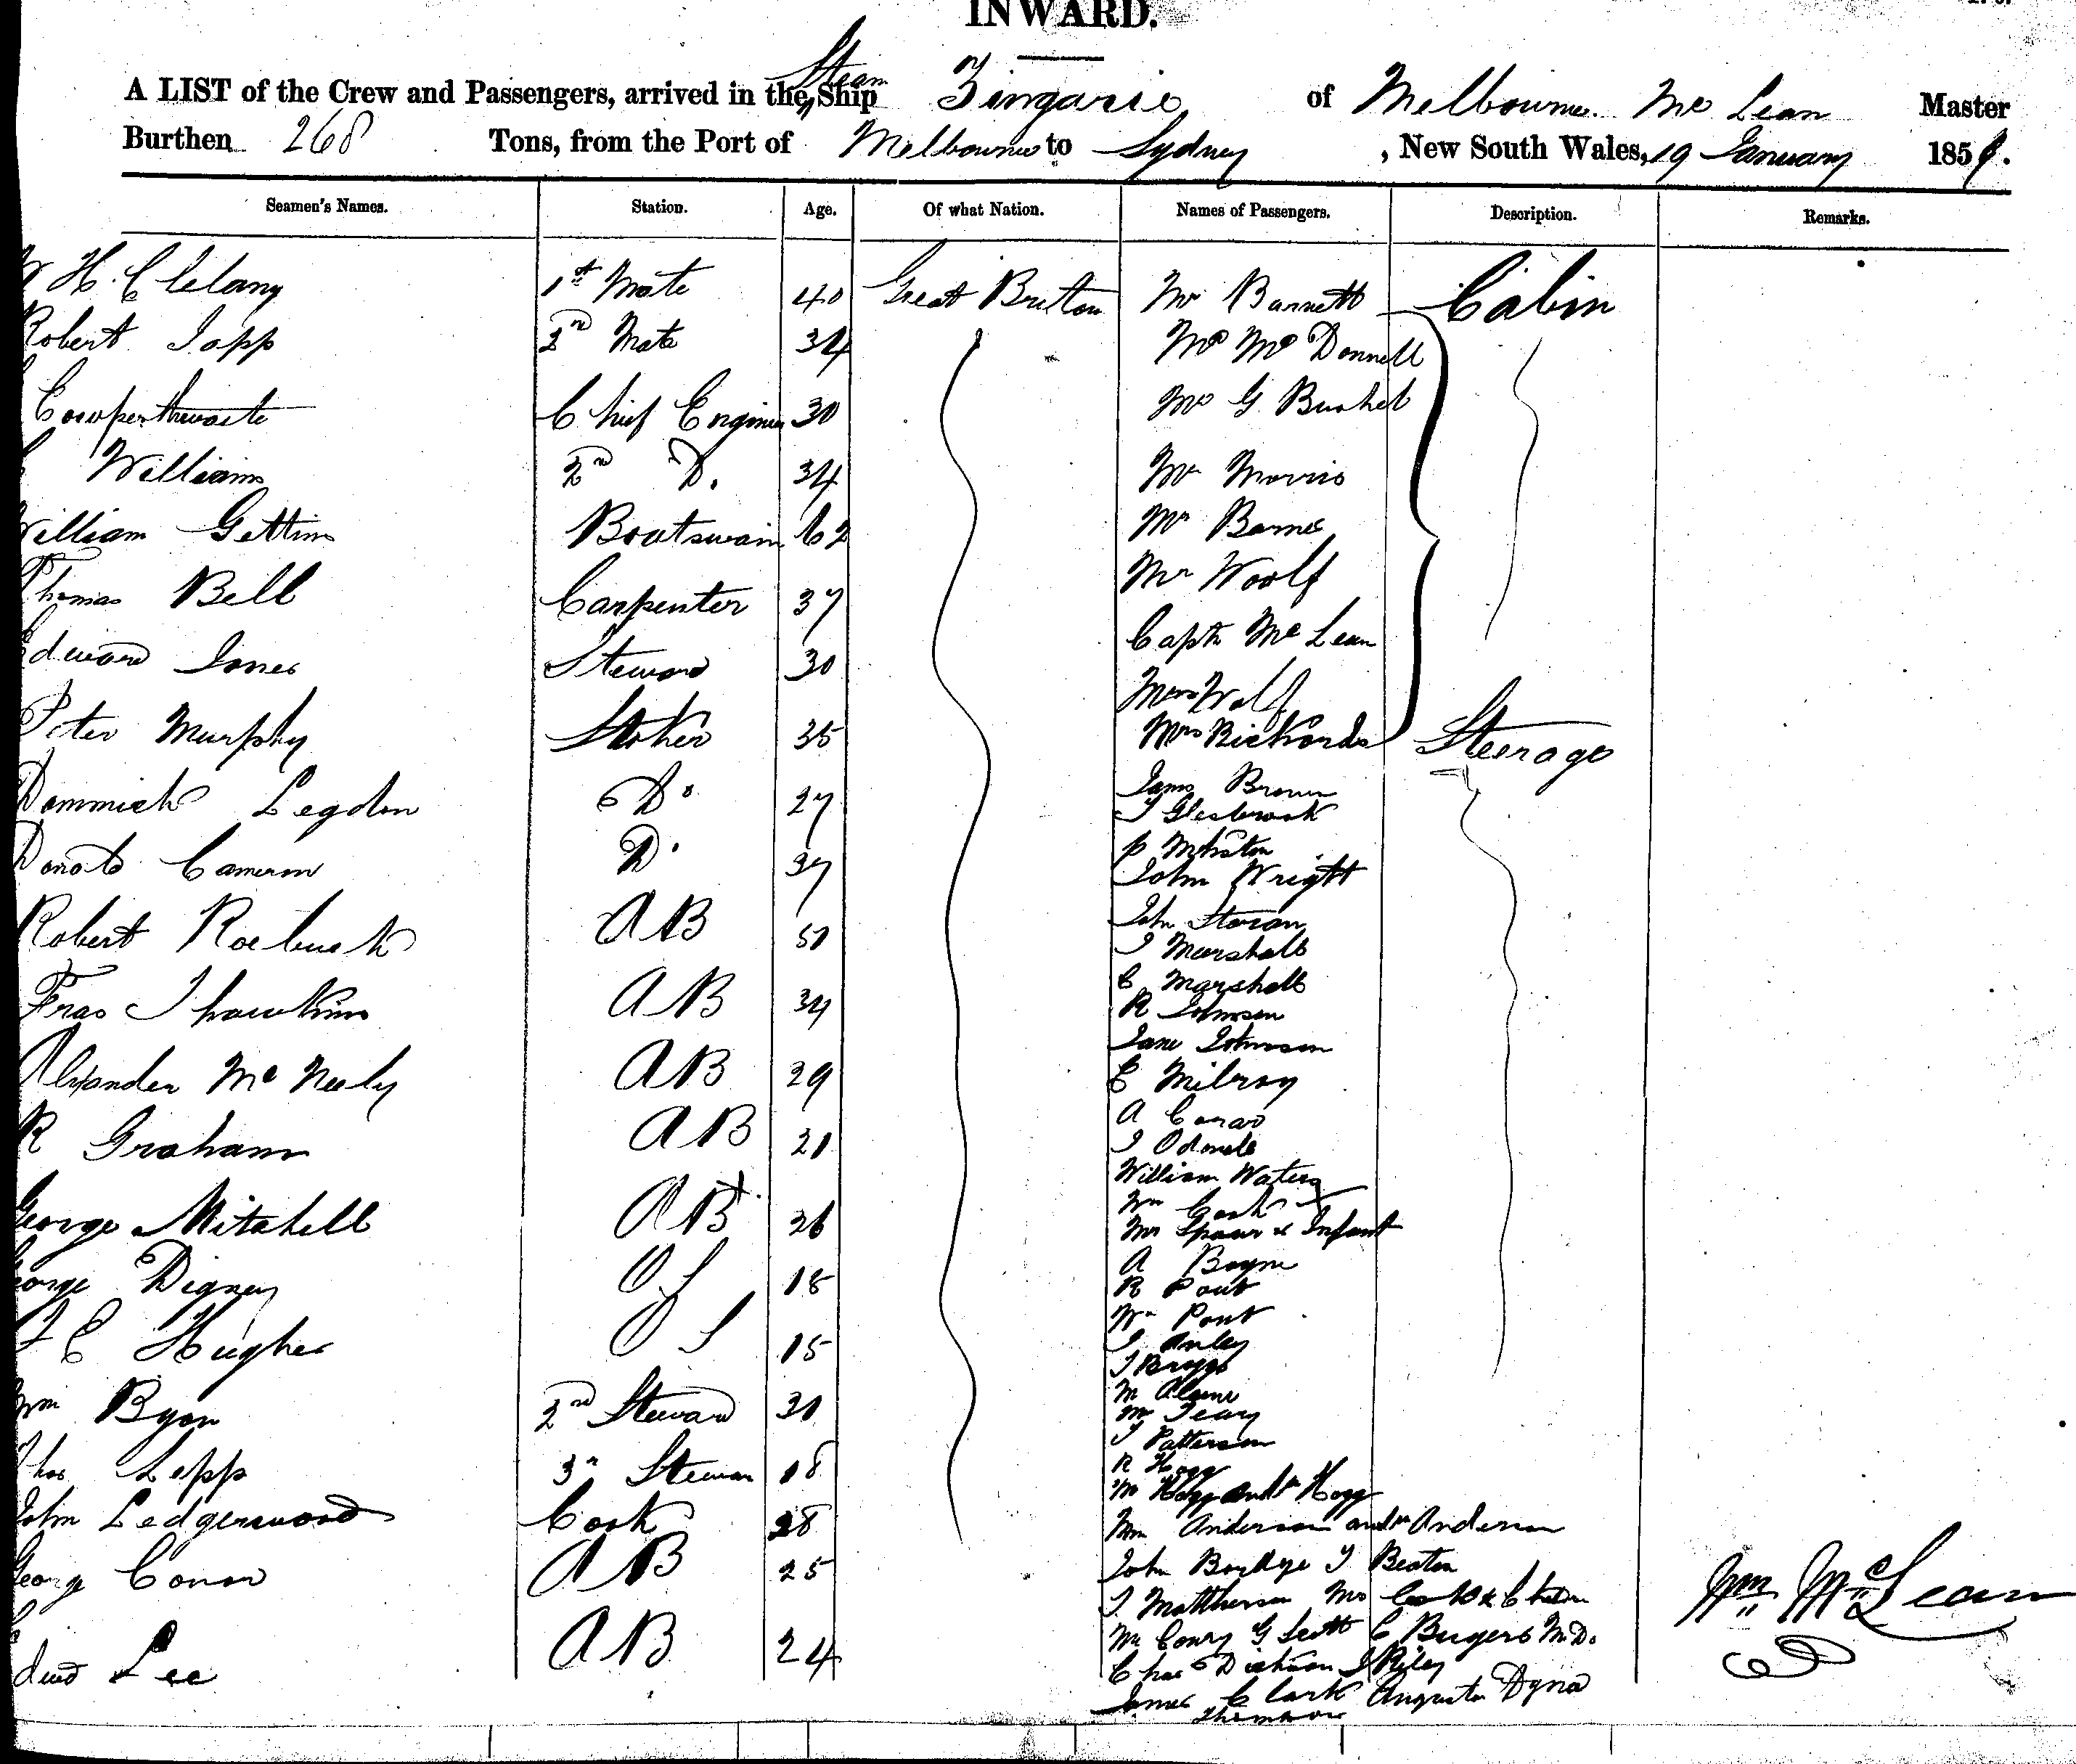 INWARD.
A LIST of the Crew and Passengers, arrived in the Steam Ship Zingarie of Melbourne Mc Lean Master
Burthen 268 Tons, from the Port of Melbourne to Sydney, New South Wales, 19 January 185
Seamen's Names. Station. Age. Of what Nation. Names of Passengers. Description. Remarks.
H. Clelany 1st Mate 40 Great Britton Mr Barnett Cabin
Robert Japp 2nd Mate 34 Mr Mc Donnell
Cowperthwaite Chief Engineer 30 Mr G Bushel
Williams 2nd D. 34 Mr Morris
William Gettins Boatswain 62 Mr Barnes
Thomas Bell Carpenter 37 Mr Woolf
Edward Jones Steward 30 Captn Mc Lean
Mrs Wolf
Peter Murphy Stoker 35 Mrs Richards Steerage
Dommick Legdon Do 27 James Brown
J Glesbrook
Donald Cameron Do 37 p
John Wright
Robert Roebuck AB 50 John Storan
J Marshall
Fras Thawkins AB 34 C Marshall
R Johnson
Jane Johnson
Alexander Mc Neely AB 29 E Milroy
A
R Graham AB 21 J Odonele
William Waters
George Mitchell AB 26 Wm Cook
Mrs Spaur & Infant
A Boyne
George Digney OS 18 R Pont
Wm Pont
J C Hughes OS 15 J Anley
J Briggs
M
Wm Byon 2nd Steward 30 M Teary
J Patterson
Thos Lepp 3rd Stewar 18 R Hogg
M Hogg and Hogg
John Ledgerwood Cook 28 Wm Anderson and Anderson
George Conor AB 25 John J Beaton
J. Matthewson Mrs
Edwd Lee AB 24 Mr Conry G Scott C Bugers M.D.
Chas Dickson J Riley
James Clark Augusta Dyna
Thomson
Wm McLean